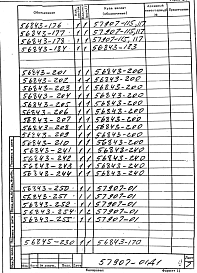 Обозначение Куда входит (обозначение)
56843-176 1 1 57907-115,117
56843-177 1 1 57907-115,117
56843-178 1 1 57907-115,117
56843-184 1 1 56843-183
56843-201 1 1 56843-200
56843-202 1 1 56843-200
56843-203 1 1 56843-200
56843-204 1 1 56843-200
56843-205 1 1 56843-200
56843-206 1 1 56843-200
56843-207 1 1 56843-200
56843-208 1 1 56843-200
56843-209 1 1 56843-200
56843-210 1 1 56843-200
56843-241 1 1 56843-240
56843-242 1 1 56843-240
56843-243 1 1 56843-240
56843-244 1 1 56843-240
56843-250 1 1 57907-01
56843-251 1 57907-01
56843-252 1 1 57907-01
56843-254 1 2 57907-01
56843-255 1 1 57907-01
56845-230 1 1 56843-170
57907-01Д1
Копировал Формат 11